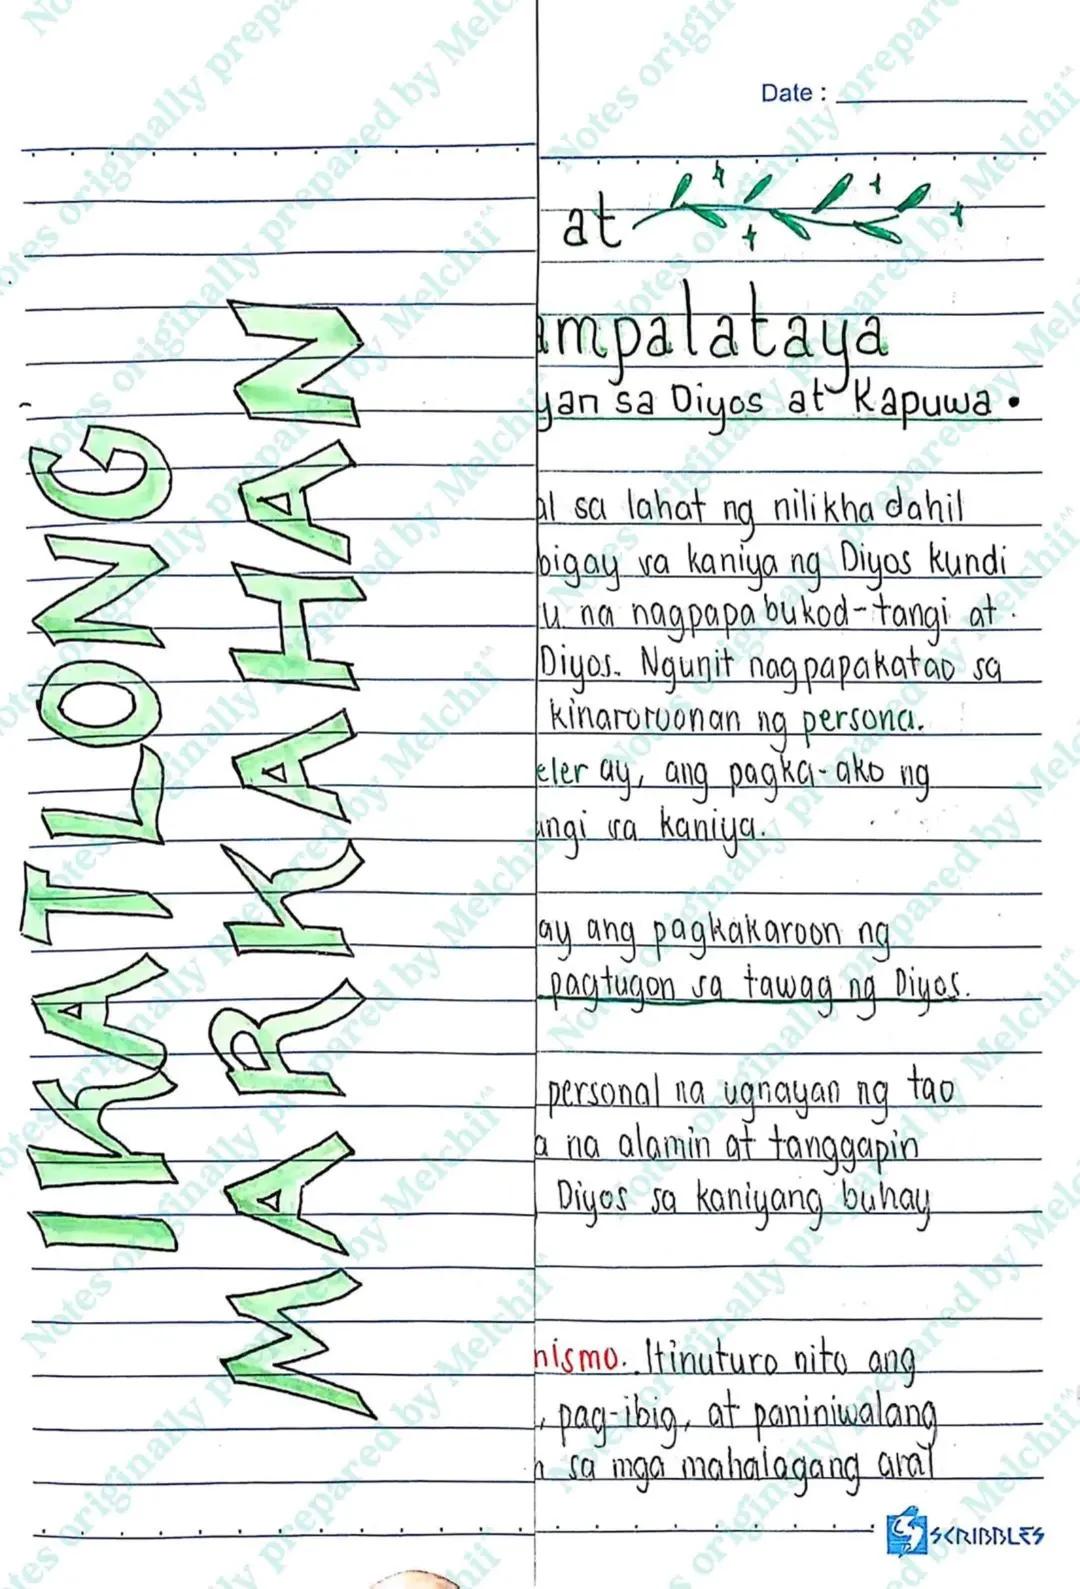 IKATLONG
MARKAHAN
Date :
at
ampalataya
yan sa Diyos at Kapuwa.
al sa lahat ng nilikha dahil
bigay sa kaniya ng Diyos kundi
u. na nagpapabukod-tangi at
Diyos. Ngunit nagpapakatao sa
kinaroroonan ng persona.
eler ay, ang pagka-ako ng
angi sa kaniya.
ay ang pagkakaroon ng
pagtugon sa tawag ng Diyos.
personal na ugnayan ng tao
a na alamin at tanggapin
Diyos sa kaniyang buhay
nismo. Itinuturo nito ang
, pag-ibig, at paniniwalang
n sa mga mahalagang aral
SCRIBBLES
Notes originally prepared by Melchii^^